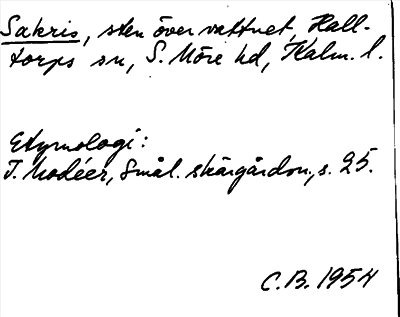 Sakris, sten över vattnet, Hall-
torps sn, S. Möre hd, Kalm. l.
Etymologi:
I. Modéer, Smål. skärgårdsn., s. 25.
C.B. 1954